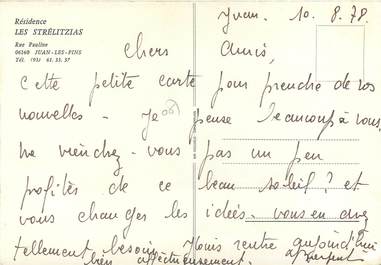 Résidence
LES STRÉLITZIAS
Rue Pauline
06160 JUAN-LES-PINS
Tél. (93) 61. 33. 37
Juan. 10. 8. 78.
Chers Amis,
Cette petite carte pour prendre de vos
nouvelles - Je pense beaucoup à vous,
ne viendrez-vous pas un peu
profiter de ce beau soleil? et
vous changer les idées. vous en avez
tellement besoin. Louis rentre aujourd'hui
bien affectueusement.